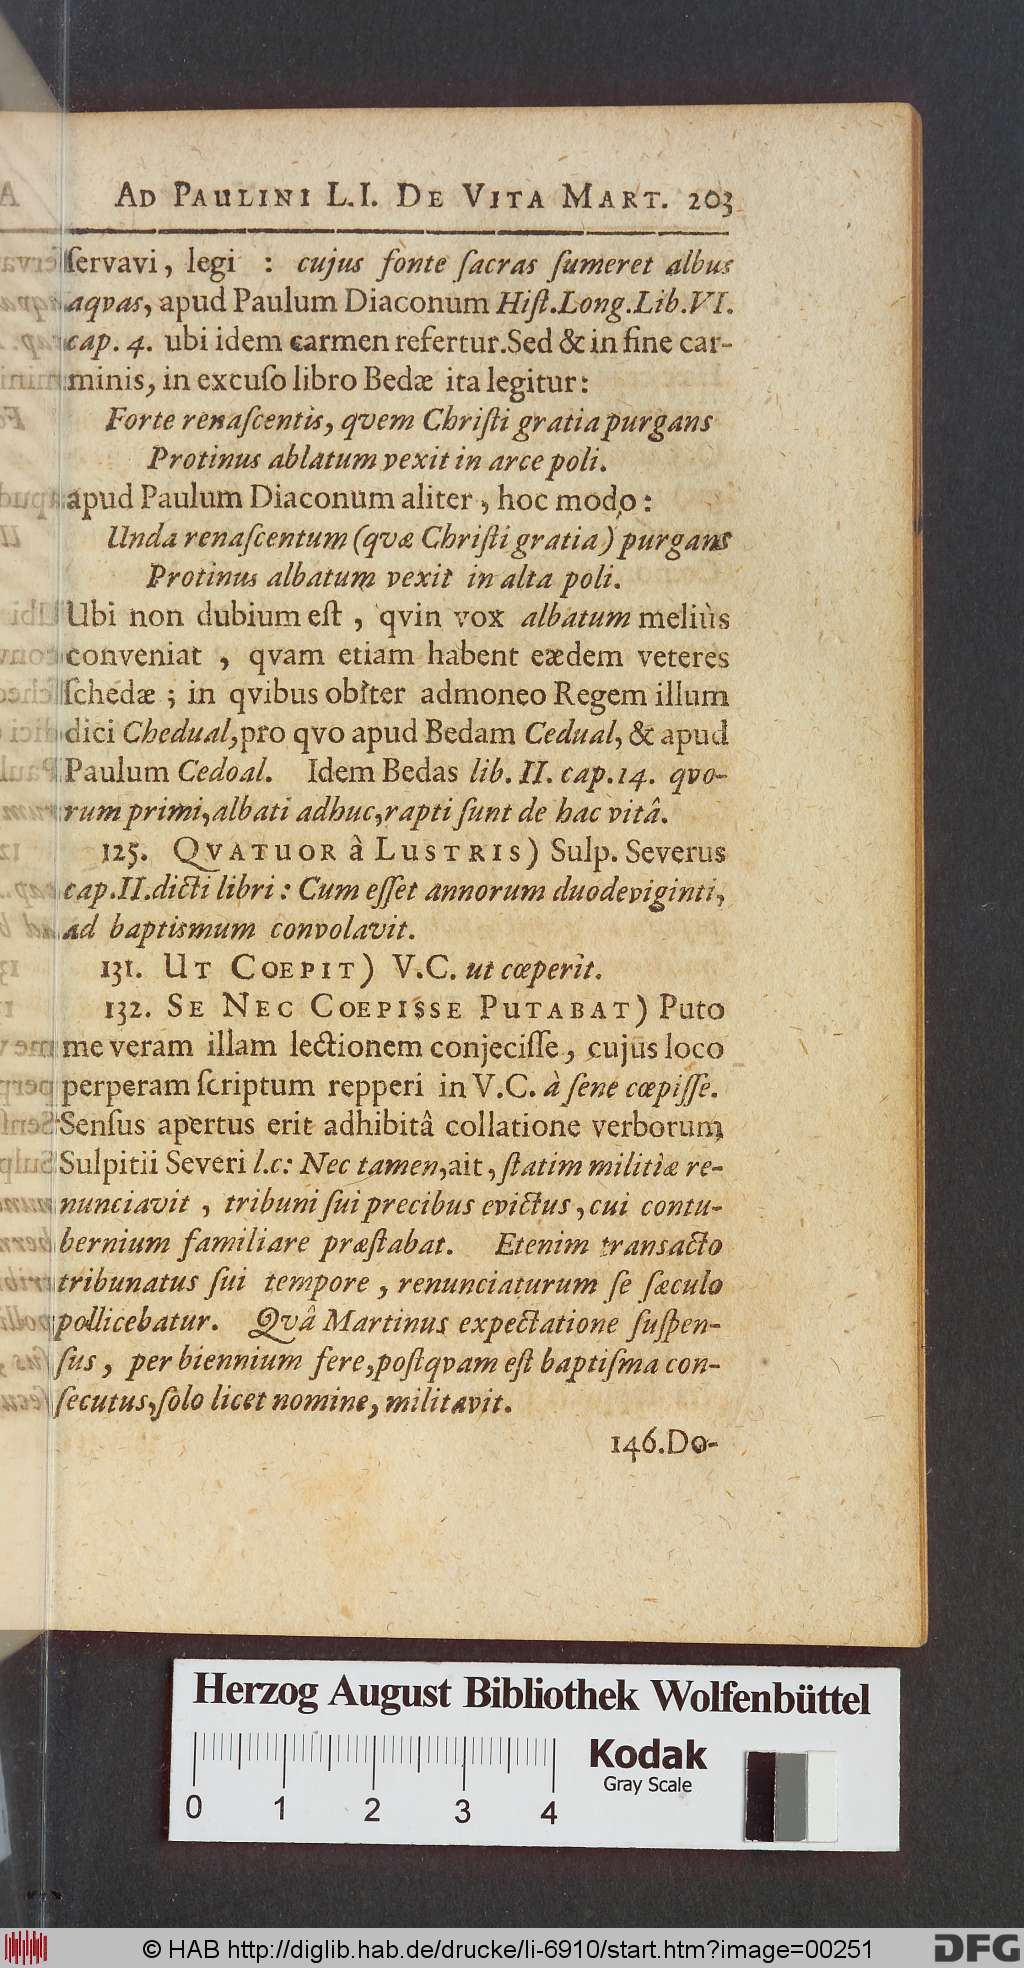 AD PAULINI L.I. DE VITA MART. 203
ſervavi, legi : cujus fonte ſacras ſumeret albus
aqvas, apud Paulum Diaconum Hiſt.Long.Lib.VI.
cap. 4. ubi idem carmen refertur.Sed & in fine car-
minis, in excuſo libro Bedæ ita legitur:
Forte renaſcentis, qvem Chriſti gratia purgans
Protinus ablatum vexit in arce poli.
apud Paulum Diaconum aliter, hoc modo:
Unda renaſcentum (qvæ Chriſti gratia) purgans
Protinus albatum vexit in alta poli.
Ubi non dubium eſt, qvin vox albatum meliùs
conveniat, qvam etiam habent eædem veteres
ſchedæ; in qvibus obiter admoneo Regem illum
dici Chedual,pro qvo apud Bedam Cedual, & apud
Paulum Cedoal. Idem Bedas lib. II. cap.14. qvo-
rum primi,albati adhuc,rapti ſunt de hac vitâ.
125. QVATUOR à LUSTRIS) Sulp. Severus
cap.II.dicti libri: Cum eſſet annorum duodeviginti,
ad baptismum convolavit.
131. UT COEPIT) V.C. ut cœperit.
132. SE NEC COEPISSE PUTABAT) Puto
me veram illam lectionem conjeciſſe, cujus loco
perperam ſcriptum repperi in V.C. à ſene cœpiſſe.
Senſus apertus erit adhibitâ collatione verborum
Sulpitii Severi l.c: Nec tamen,ait, ſtatim militiæ re-
nunciavit, tribuni ſui precibus evictus, cui contu-
bernium familiare præſtabat. Etenim transacto
tribunatus ſui tempore, renunciaturum ſe ſæculo
pollicebatur. Qvâ Martinus expectatione ſuſpen-
ſus, per biennium fere,poſtqvam eſt baptiſma con-
ſecutus,ſolo licet nomine, militavit.
146.Do-
Herzog August Bibliothek Wolfenbüttel
Kodak
Gray Scale
0 1 2 3 4
© HAB http://diglib.hab.de/drucke/li-6910/start.htm?image=00251
DFG